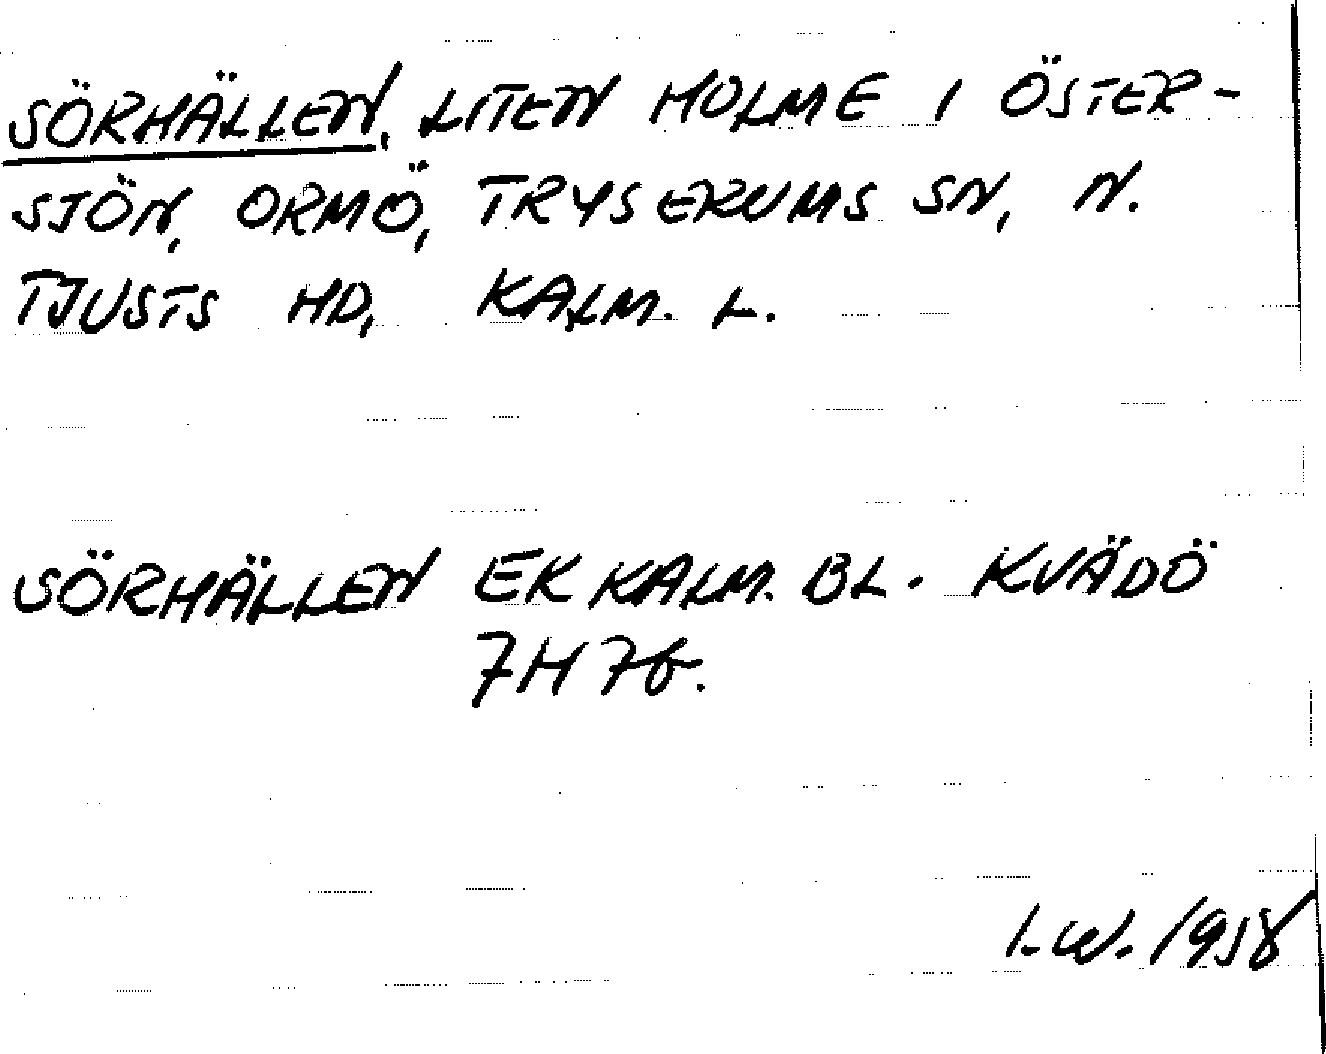 SÖRHÄLLEN, LITEN HOLME I ÖSTER-
SJÖN, ORMÖ, TRYSERUMS SN, N.
TJUSTS HD, KALM. L.
SÖRHÄLLEN EK KALM. BL. KVÄDÖ
7H 7b.
I.W. 1958